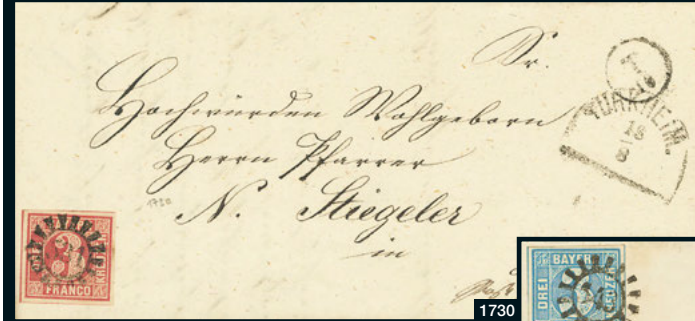 Sr.
Hochwürden Wohlgeborn
Herrn Pfarrer
N. Stiegeler
in
TÜRKHEIM.
18
8
1730
FRANCO
1730
BAYER
DREI